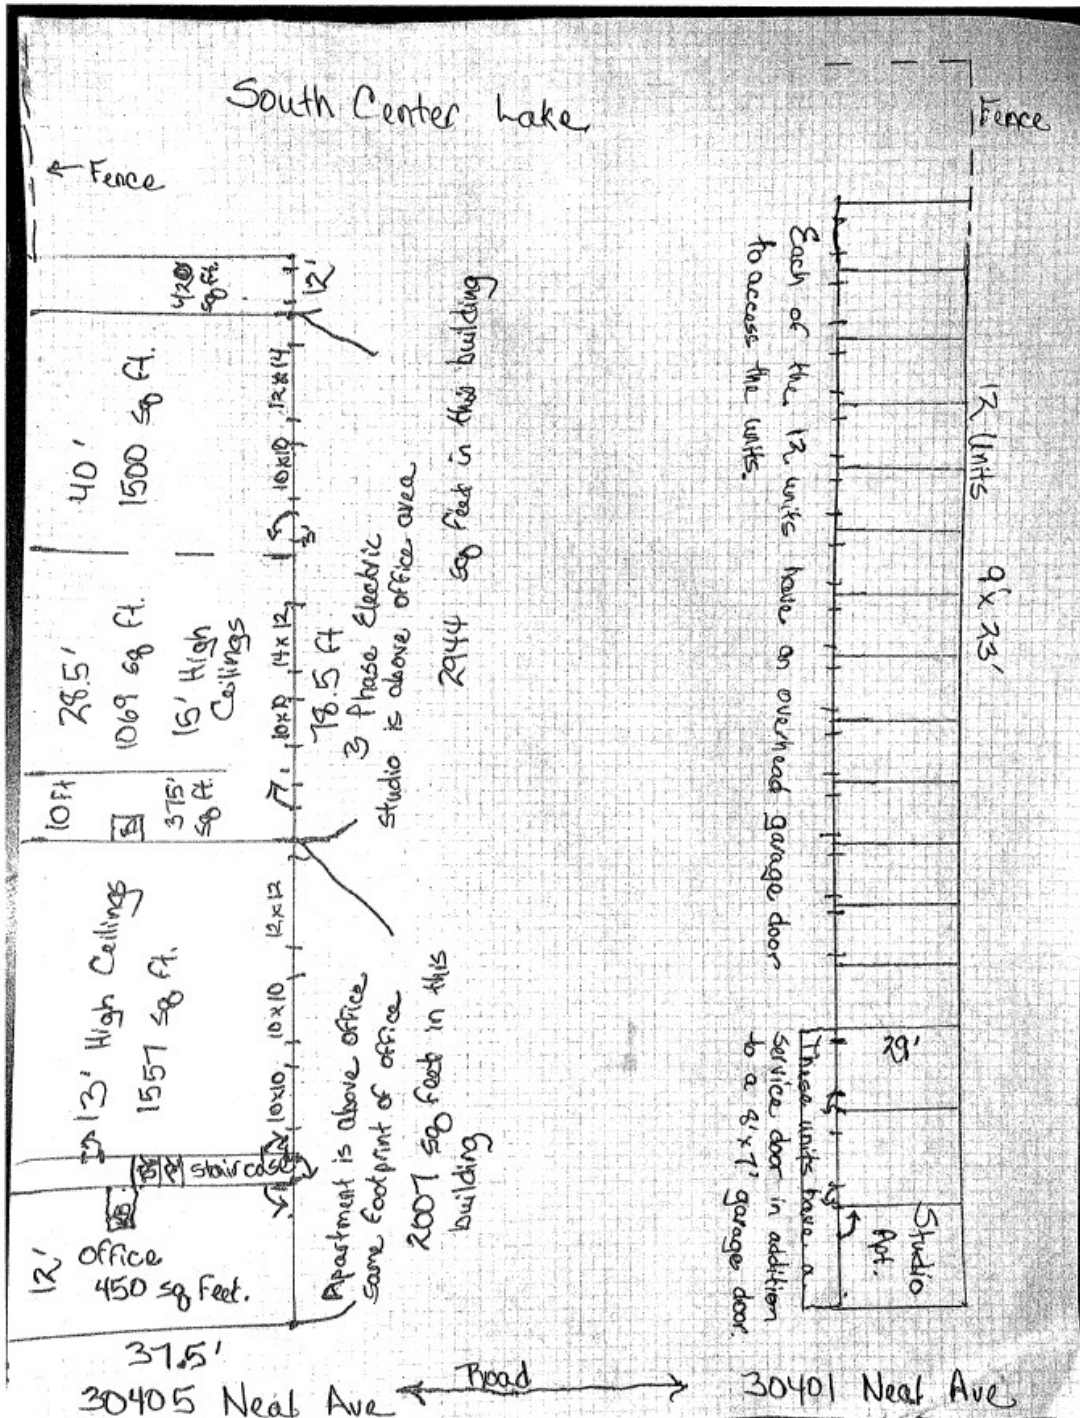 South Center Lake
Fence
← Fence
420
sq ft.
12'
40'
1500 sq ft.
12x14
10x10
3'
28.5'
1069 sq ft.
15' High
Ceilings
14x12
10x10
78.5 ft
3 Phase Electric
Studio is above office area
2944 sq feet in this building
10ft
375'
sq ft.
13' High Ceilings
1557 sq ft.
12x12
10x10
10x10
staircase
12'
office
450 sq feet.
Apartment is above office
same footprint of office
2007 sq feet in this
building
37.5'
30405 Neal Ave
Road
30401 Neal Ave
Each of the 12 units have an overhead garage door
to access the units.
12 Units 9'x23'
29'
These units have a
service door in addition
to a 8'x7' garage door.
Studio
Apt.